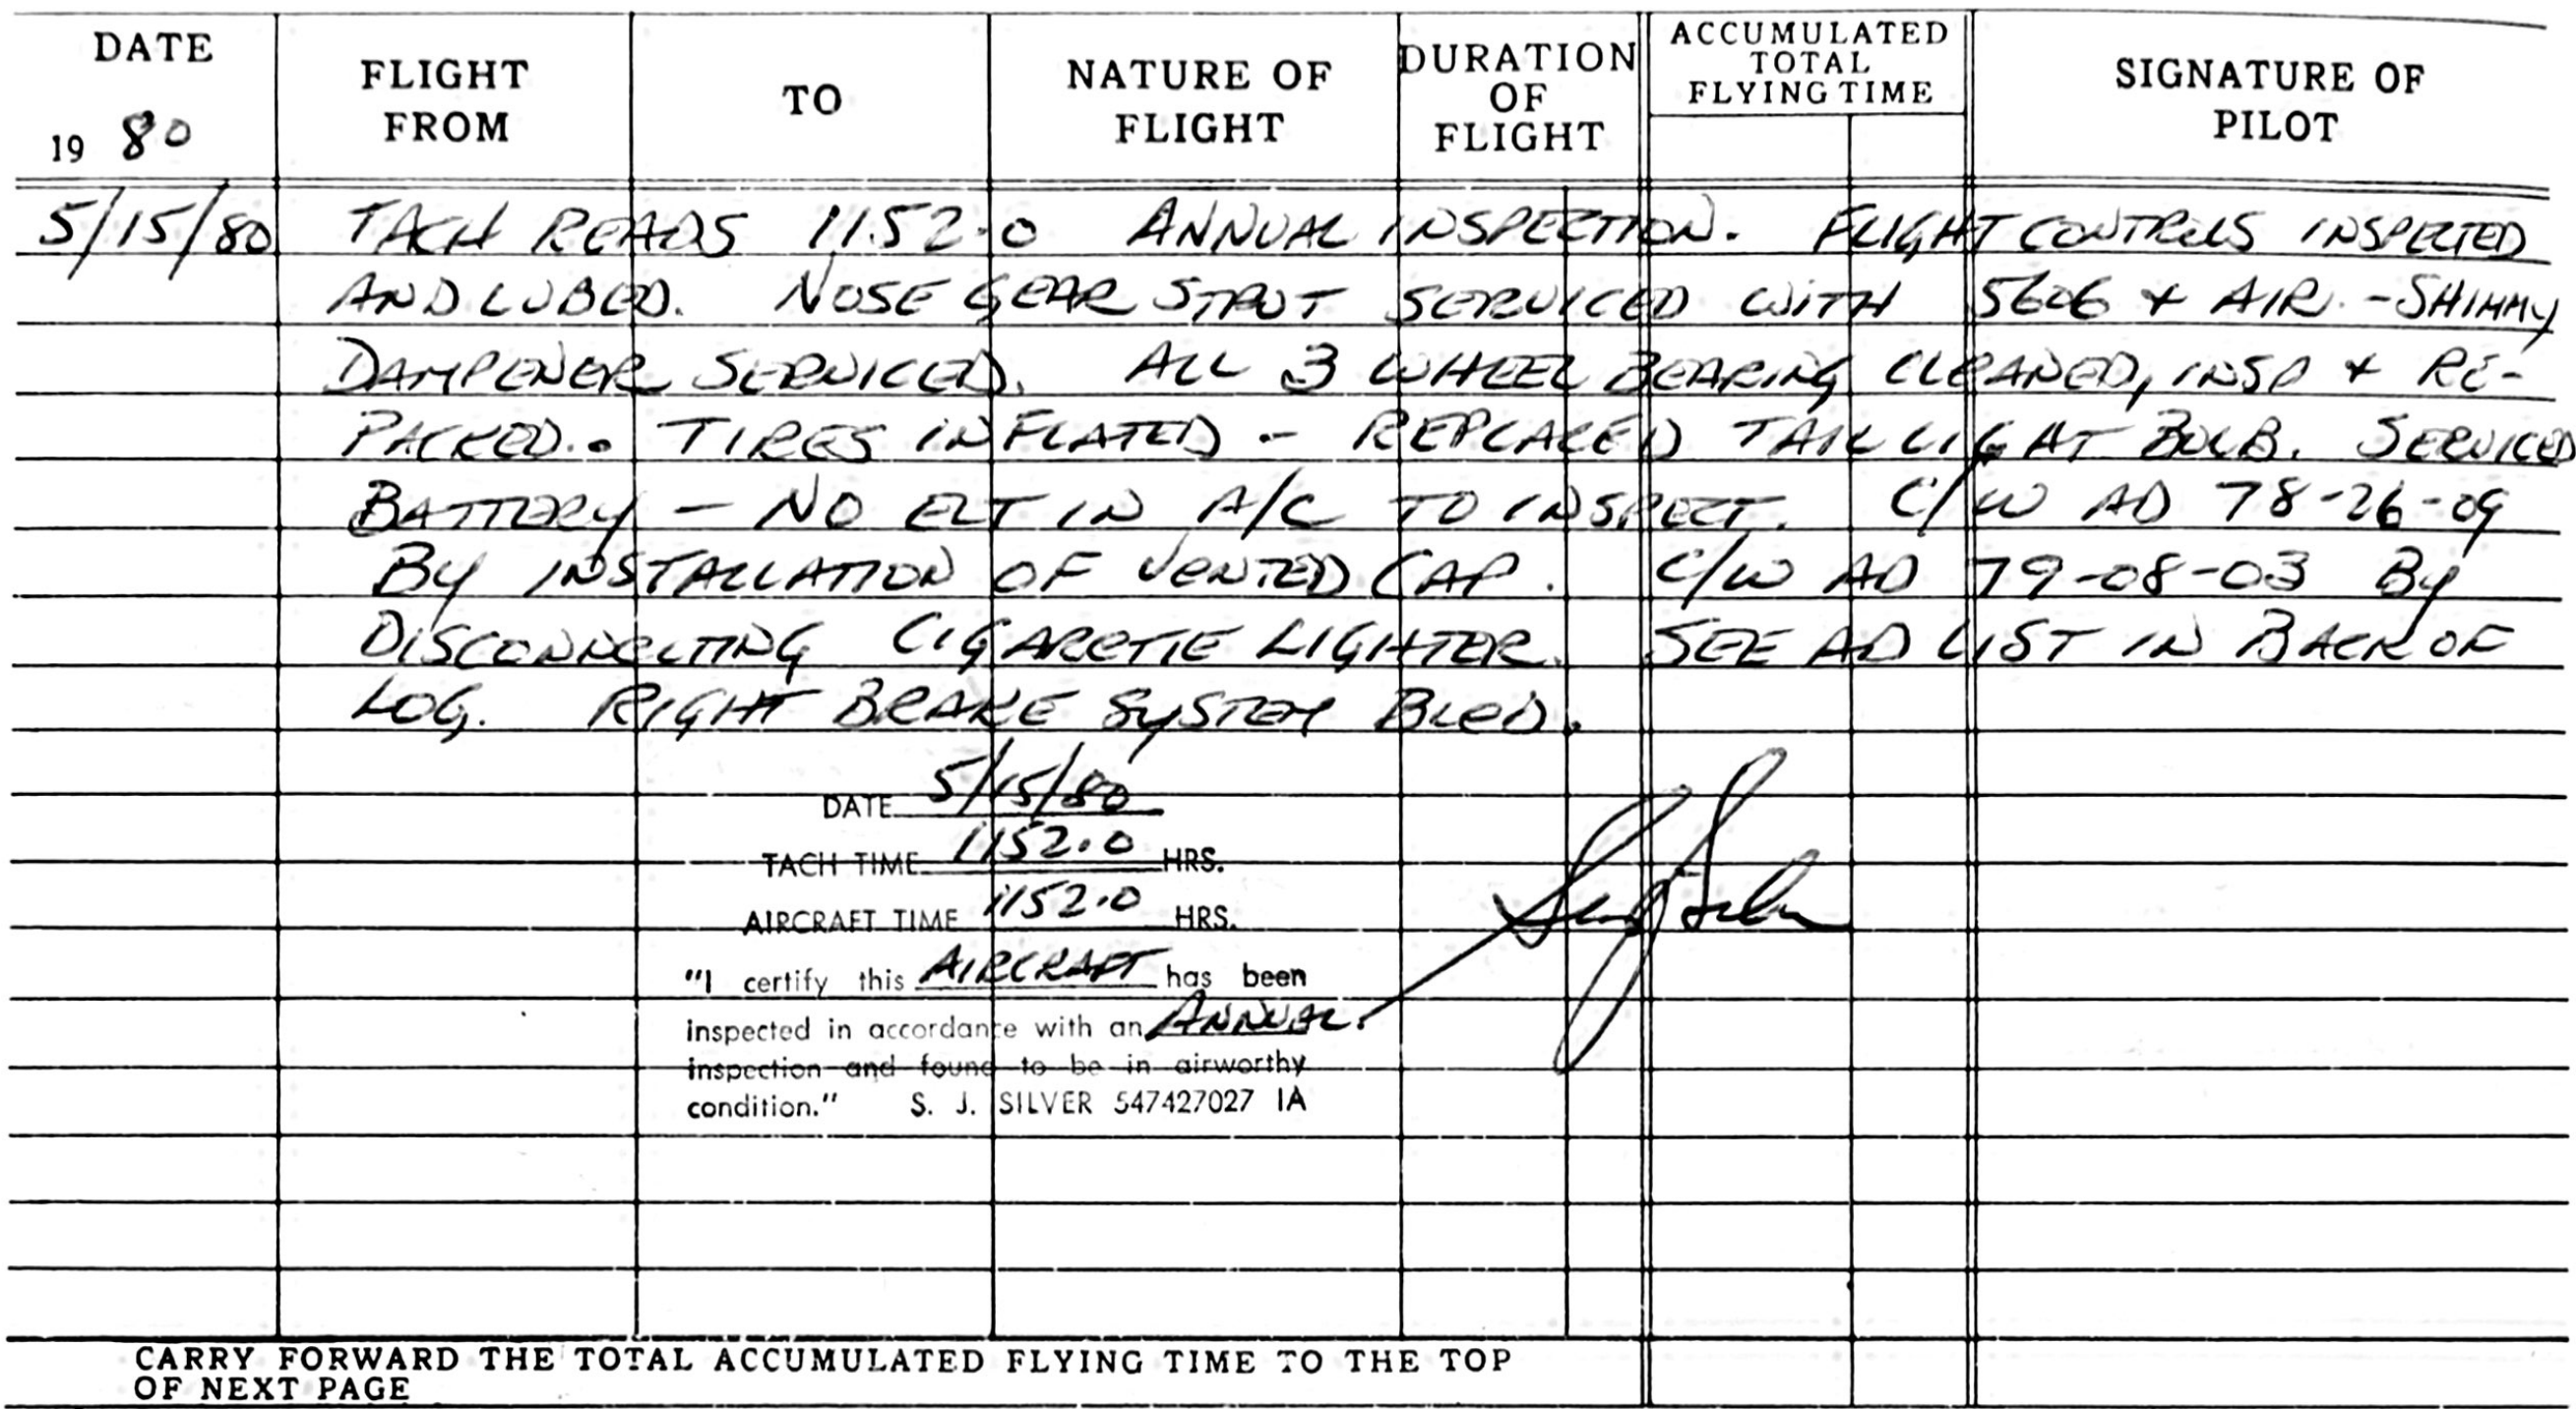 DATE
19 80
FLIGHT
FROM
TO
NATURE OF
FLIGHT
DURATION
OF
FLIGHT
ACCUMULATED
TOTAL
FLYING TIME
SIGNATURE OF
PILOT
5/15/80 TACH READS 1152.0 ANNUAL INSPECTION. FLIGHT CONTROLS INSPECTED
AND LUBED. NOSE GEAR STRUT SERVICED WITH 5606 + AIR. - SHIMMY
DAMPENER SERVICED. ALL 3 WHEEL BEARING CLEANED, INSP + RE-
PACKED. TIRES INFLATED - REPLACED TAIL LIGHT BULB. SERVICED
BATTERY - NO ELT IN A/C TO INSPECT. C/W AD 78-26-09
BY INSTALLATION OF VENTED CAP. C/W AD 79-08-03 BY
DISCONNECTING CIGARETTE LIGHTER. SEE AD LIST IN BACK OF
LOG. RIGHT BRAKE SYSTEM BLED.
DATE 5/15/80
TACH TIME 1152.0 HRS.
AIRCRAFT TIME 1152.0 HRS.
"I certify this AIRCRAFT has been
inspected in accordance with an ANNUAL
inspection and found to be in airworthy
condition." S. J. SILVER 547427027 IA
CARRY FORWARD THE TOTAL ACCUMULATED FLYING TIME TO THE TOP
OF NEXT PAGE